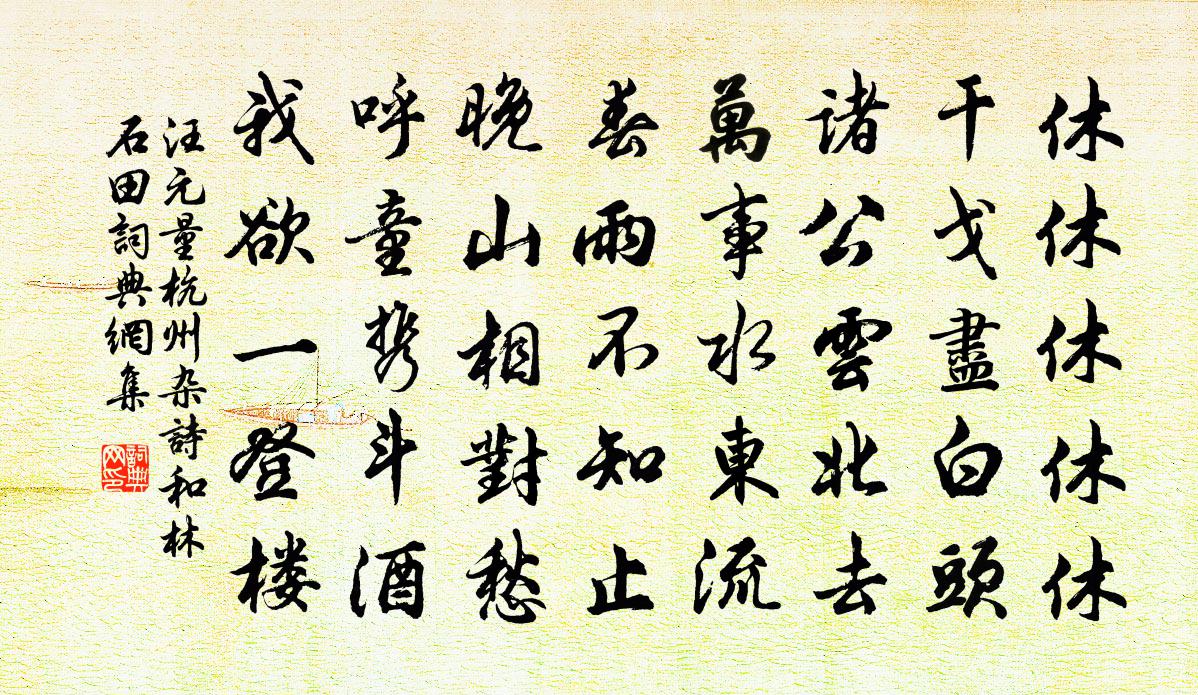 休休休休休
干戈盡白頭
諸公雲北去
萬事水東流
春雨不知止
晚山相對愁
呼童携斗酒
我欲一登楼
汪元量杭州杂詩和林
石田詞典網集
詞典
网印